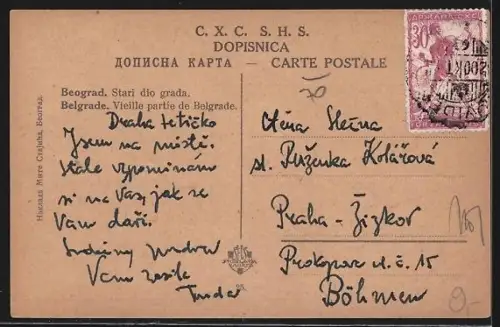 С. Х. С.   S. H. S.
DOPISNICA
ДОПИСНА КАРТА — CARTE POSTALE
Beograd. Stari dio grada.
Belgrade. Vieille partie de Belgrade.
Draha tetičko
Jsem na místě.
Stále vzpomínám
si na Vás, jak se
Vám daří.
Srdečný pozdrav
Vám zasílá
Ctěná Slečna
sl. Růženka Kolářová
Praha - Žižkov
Prokopova d. č. 15
Böhmen
30